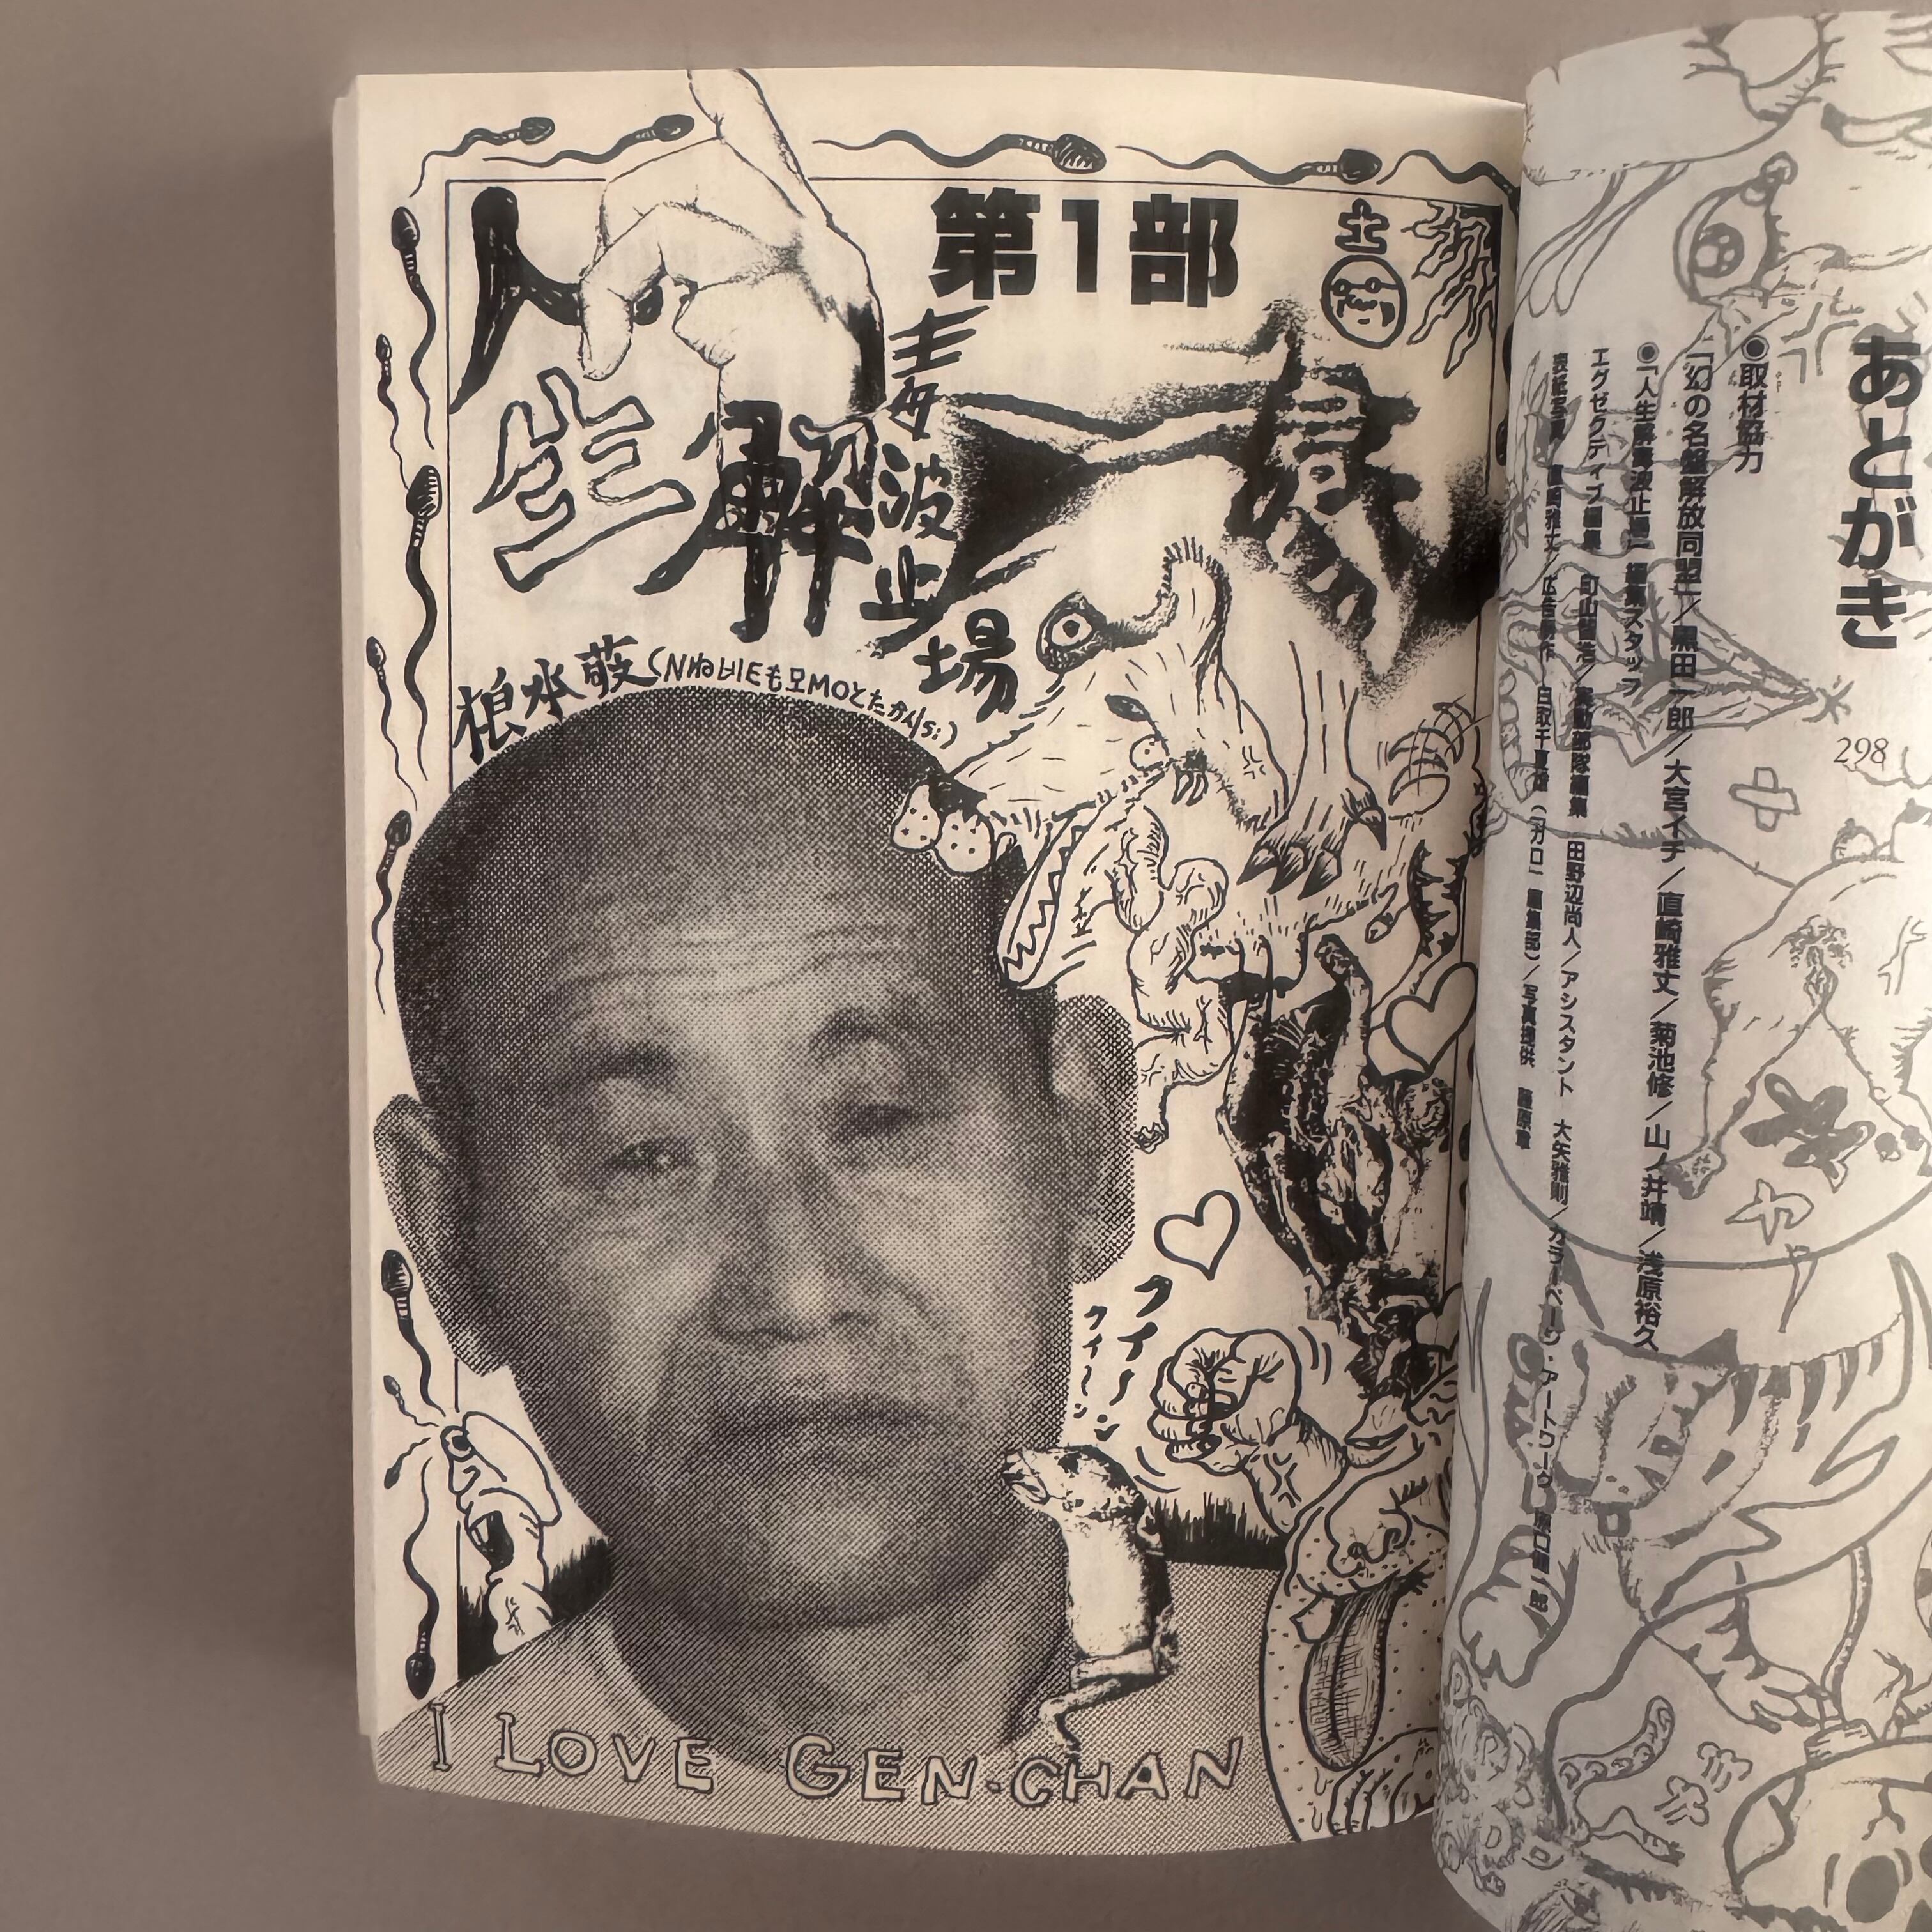 第1部
人生解毒波止場
根本敬
I LOVE GEN-CHAN
フイーン
フイーン
あとがき
298
●取材協力
「幻の名盤解放同盟」/黒田一郎/大宮イチ/直崎雅丈/菊池修/山ノ井靖/浅原裕久
●「人生解毒波止場」編集スタッフ
エグゼクティブ編集 町山智浩/実動部隊編集 田野辺尚人/アシスタント 大矢雅則/カラーページ・アートワーク 原口健一郎
表紙写真 直崎雅丈/広告制作 白取千夏雄(「ガロ」編集部)/写真提供 藤原章